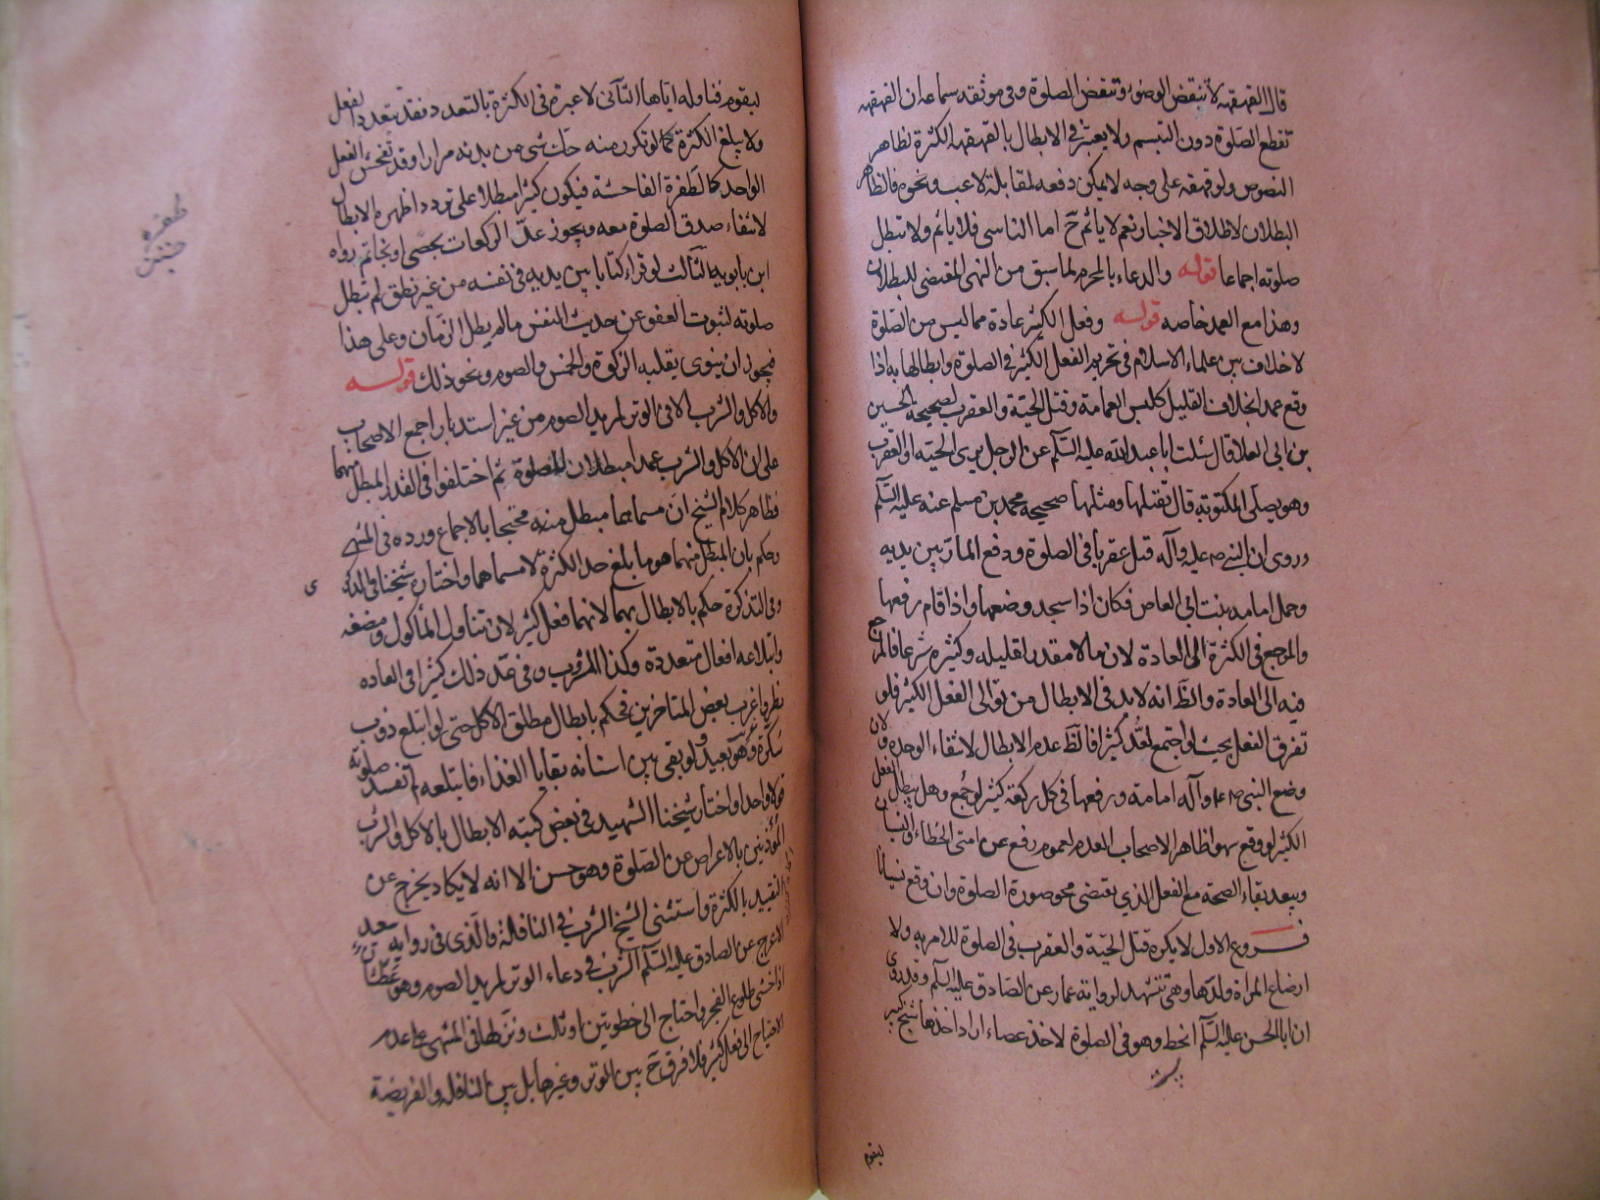 قال القهقهه لا تنقض الوضوء وتنقض الصلوة وفى موثقه سماعه ان القهقهه
تقطع الصلوة دون التبسم ولا يعتبر فى الابطال بالقهقهه الكثرة لظاهر
النصوص ولو قهقهه على وجه لا يمكن دفعه لمقابلة لاعب ونحوه فالظاهر
البطلان لاطلاق الاخبار نعم لا ياثم ح اما الناسى فلا ياثم ولا تبطل
صلوته اجماعا قوله والدعاء بالمحرم لما سبق من النهى المقتضى للبطلان
وهذا مع العمد خاصه قوله وفعل الكثير عادة مما ليس من الصلوة
لا خلاف بين علماء الاسلام فى تحريم الفعل الكثير فى الصلوة وابطالها به اذا
وقع عمدا بخلاف القليل كلبس العمامة وقتل الحية والعقرب لصحيحة الحسين
بن ابى العلا قال سئلت ابا عبد الله عليه السلم عن الرجل يرى الحيه او العقرب
وهو يصلى المكتوبة قال تقتلها ومثلها صحيحة محمد بن مسلم عنه عليه السلم
وروى ان النبى ص عليه وآله قتل عقربا فى الصلوة ودفع المار بين يديه
وحمل امامه بنت ابى العاص فكان اذا سجد وضعها واذا قام رفعها
والمرجع فى الكثرة الى العادة لان ما لا مقدر لقليله وكثيره شرعا فالمرجع
فيه الى العادة والظ انه لا بد فى الابطال من توالى الفعل الكثير فلو
تفرق الفعل بحيث لو اجتمع لعد كثيرا فالظ عدم الابطال لانتفاء الوحدة ولان
وضع النبى ص ع وآله امامة ورفعها فى كل ركعة كثير لو جمع وهل يبطل الفعل
الكثير لو وقع سهوا ظاهر الاصحاب العدم لعموم رفع عن امتى الخطاء والنسيان
ويبعد بقاء الصحة مع الفعل الذى يقتضى محو صورة الصلوة وان وقع نسيانا
فروع الاول لا يكره قتل الحية والعقرب فى الصلوة للامر به ولا
ارضاع المراة ولدها وهى تتشهد لرواية عمار عن الصادق عليه السلم وقد روى
ان ابا الحسن عليه السلم انحط وهو فى الصلوة لاخذ عصاء اراد اخذها شيخ كبير
ليقوم
ليقوم فناوله اياها الثانى لا عبرة فى الكثرة بالتعدد فقد يتعدد الفعل
ولا يبلغ الكثرة كما لو تكرر منه حك شئ من بدنه مرارا وقد تفحش الفعل
الواحد كالطفرة الفاحشة فيكون كثيرا مبطلا على تردد اظهره الابطال
لانتفاء صدق الصلوة معه ويجوز عد الركعات بحصى او بخاتم رواه
ابن بابويه الثالث لو قراء كتابا بين يديه فى نفسه من غير نطق لم تبطل
صلوته لثبوت العفو عن حديث النفس ما لم يطل الزمان وعلى هذا
فيجوز ان ينوى بقلبه الزكوة والخمس والصوم ونحو ذلك قوله
والاكل والشرب الا فى الوتر لمريد الصوم من غير استدبار اجمع الاصحاب
على ان الاكل والشرب عمدا مبطلان للصلوة ثم اختلفوا فى القدر المبطل منهما
فظاهر كلام الشيخ ان مسماهما مبطل منه محتجا بالاجماع ورده فى المنتهى
وحكم بان المبطل منهما هو ما بلغ حد الكثرة لا مسماهما واختاره شيخنا فى الذكرى
وفى التذكرة حكم بالابطال بهما لانهما فعل كثير لان تناول المأكول ومضغه
وابتلاعه افعال متعددة وكذا المشروب وفى عد ذلك كثيرا فى العاده
نظر واغرب بعض المتاخرين فحكم بابطال مطلق الاكل حتى لو ابتلع ذوب
سكرة وهو بعيد ولو بقى بين اسنانه بقايا الغذاء فابتلعه لم تفسد صلوته
قولا واحدا واختار شيخنا الشهيد فى بعض كتبه الابطال بالاكل والشرب
المؤذنين بالاعراض عن الصلوة وهو حسن الا انه لا يكاد يخرج عن
التقييد بالكثرة واستثنى الشيخ الشرب فى النافلة والذى فى رواية سعيد
الاعرج عن الصادق عليه السلم الشرب فى دعاء الوتر لمريد الصوم وهو عطشان
اذا خشى طلوع الفجر واحتاج الى خطوتين او ثلث ونزلها فى المنتهى على عدم
الاحتياج الى فعل كثير فلا فرق ح بين الوتر وغيرها بل بين النافلة والفريضة